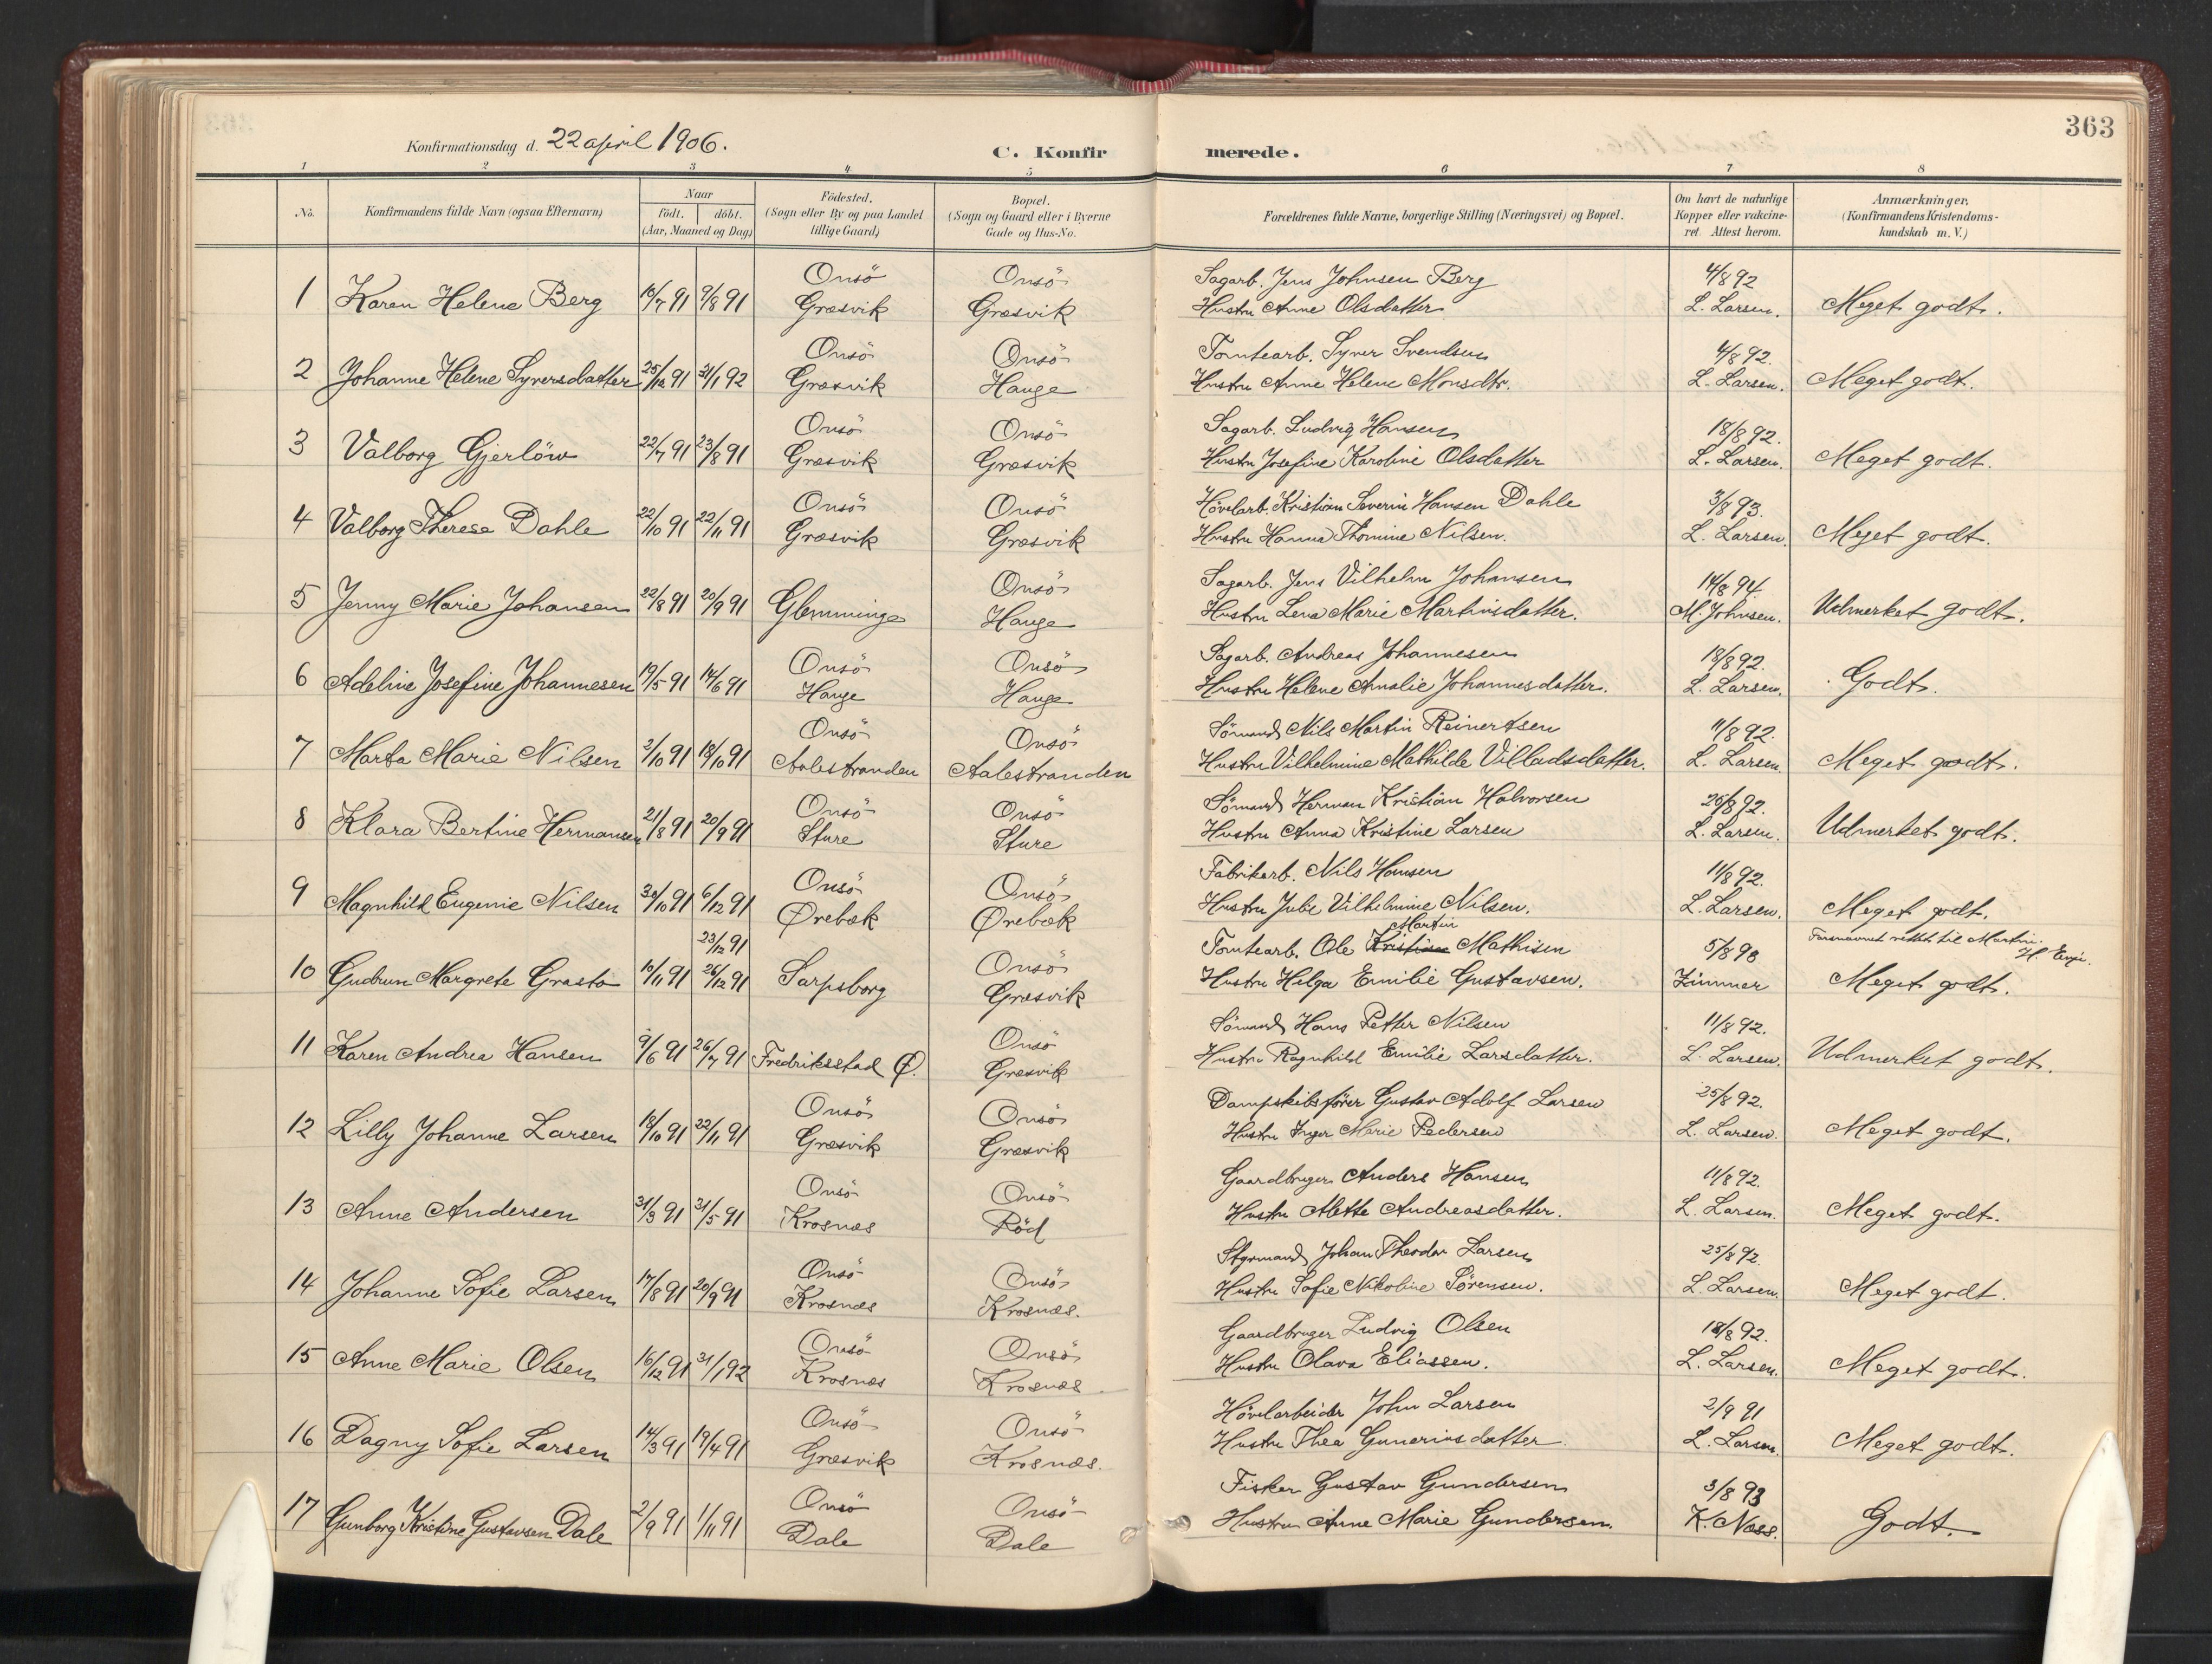 363
Konfirmationsdag d. 22 april 1906.
C. Konfirmerede.
1 2 3 4 5 6 7 8
No.
Konfirmandens fulde Navn (ogsaa Efternavn)
Naar
födt. döbt.
(Aar, Maaned og Dag)
Födested.
(Sogn eller By og paa Landet
tillige Gaard)
Bopæl.
(Sogn og Gaard eller i Byerne
Gade og Hus-No.
Forældrenes fulde Navne, borgerlige Stilling (Næringsvei) og Bopæl.
Om havt de naturlige
Kopper eller vakcine-
ret. Attest herom.
Anmærkninger.
(Konfirmandens Kristendoms-
kundskab m. V.)
Onsö Onsö Sagarb. Jens Johnsen Berg 4/8 92
1 Karen Helene Berg 16/7 91 9/8 91 Græsvik Græsvik Hustru Anne Olsdatter L. Larsen. Meget godt.
Onsö Onsö Tomtearb. Syver Svendsen 4/8 92.
2 Johanne Helene Syversdatter 25/12 91 31/1 92 Græsvik Hauge Hustru Anne Helene Monsdtr. L. Larsen. Meget godt.
Onsö Onsö Sagarb. Ludvig Hansen 18/8 92.
3 Valborg Gjerlöw 22/7 91 23/8 91 Græsvik Græsvik Hustru Josefine Karoline Olsdatter L. Larsen. Meget godt.
Onsö Onsö Høvelarb. Kristian Severin Hansen Dahle 3/8 93.
4 Valborg Therese Dahle 22/10 91 22/11 91 Græsvik Græsvik Hustru Hanna Thomine Nilsen. L. Larsen. Meget godt.
Onsö Sagarb. Jens Vilhelm Johansen 14/8 94.
5 Jenny Marie Johansen 22/8 91 20/9 91 Glemminge Hauge Hustru Lena Marie Martinsdatter. M. Johnsen. Udmerket godt.
Onsö Onsö Sagarb. Andreas Johannesen 18/8 92.
6 Adeline Josefine Johannesen 19/5 91 14/6 91 Hauge Hauge Hustru Helene Amalie Johannesdatter. L. Larsen. Godt.
Onsö Onsö Sømand Nils Martin Reinertsen 11/8 92.
7 Marta Marie Nilsen 2/10 91 18/10 91 Aalestranden Aalestranden Hustru Vilhelmine Mathilde Villadsdatter. L. Larsen. Meget godt.
Onsö Onsö Sømand Herman Kristian Halvorsen 25/8 92.
8 Klara Bertine Hermansen 21/8 91 20/9 91 Sture Sture Hustru Anna Kristine Larsen L. Larsen. Udmerket godt.
Onsö Onsö Fabrikarb. Nils Hansen 11/8 92.
9 Magnhild Eugenie Nilsen 30/10 91 6/12 91 Ørebæk Ørebæk Hustru Julie Vilhelmine Nilsen. L. Larsen. Meget godt.
Martin
23/12 91 Onsö Tomtearb. Ole Kristian Mathisen 5/8 98 Farsnavnet rettet til Martin. H.
10 Gudrun Margrete Grasto 10/11 91 26/12 91 Sarpsborg Græsvik Hustru Helga Emilie Gustavsen. Zimmer Meget godt.
Onsö Sømand Hans Petter Nilsen 11/8 92.
11 Karen Andrea Hansen 9/6 91 26/7 91 Fredriksstad Ø. Græsvik Hustru Ragnhild Emilie Larsdatter. L. Larsen. Udmerket godt.
Onsö Onsö Dampskibsfører Gustav Adolf Larsen 25/8 92.
12 Lilly Johanne Larsen 18/10 91 22/11 91 Græsvik Græsvik Hustru Inger Marie Pedersen L. Larsen. Meget godt.
Onsö Onsö Gaardbruger Anders Hansen 11/8 92.
13 Anne Andersen 31/3 91 31/5 91 Krosnæs Röd Hustru Mette Andreasdatter. L. Larsen. Meget godt.
Onsö Onsö Styrmand Johan Theodor Larsen 25/8 92.
14 Johanne Sofie Larsen 17/8 91 20/9 91 Krosnæs Krosnæs. Hustru Sofie Nikoline Sørensen. L. Larsen. Meget godt.
Onsö Onsö Gaardbruger Ludvig Olsen 18/8 92.
15 Anne Marie Olsen 16/12 91 31/1 92 Krosnæs Krosnæs. Hustru Olava Eliassen. L. Larsen. Meget godt.
Onsö Onsö Høvelarbeider John Larsen 2/9 91
16 Dagny Sofie Larsen 14/3 91 19/4 91 Græsvik Krosnæs. Hustru Thea Guneriusdatter. L. Larsen. Meget godt.
Onsö Onsö Fisker Gustav Gundersen 3/8 93
17 Gunborg Kristine Gustavsen Dale 2/9 91 1/11 91 Dale Dale Hustru Anne Marie Gundersen. K. Næss. Godt.